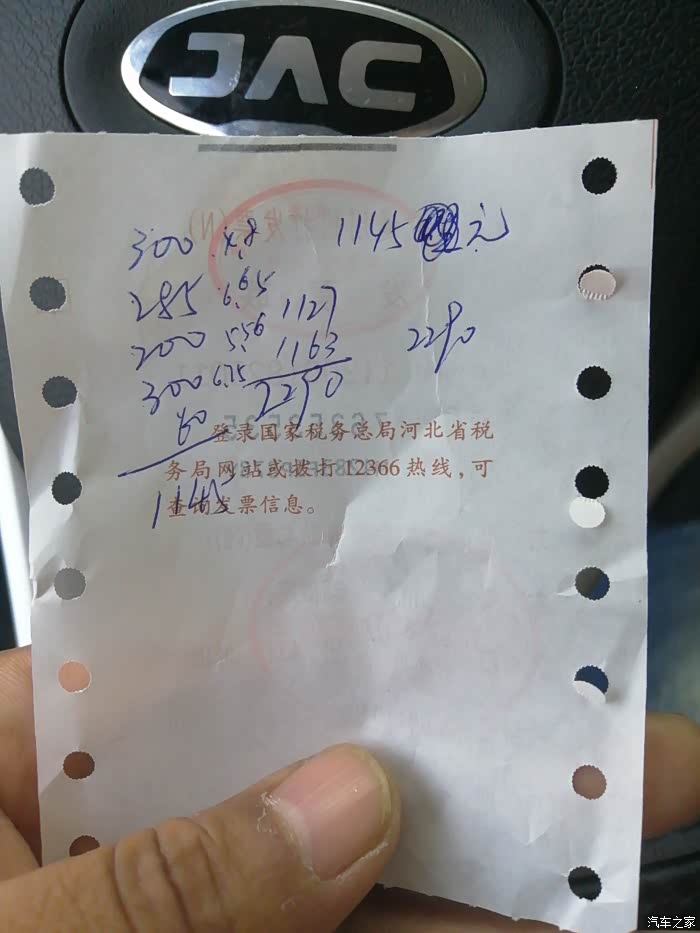 JAC
300 4.8 1145 元
285 6.65 1127
200 5.56 1163 2290
300 6.75 2290
60
1145
登录国家税务总局河北省税
务局网站或拨打12366热线,可
查询发票信息。
汽车之家